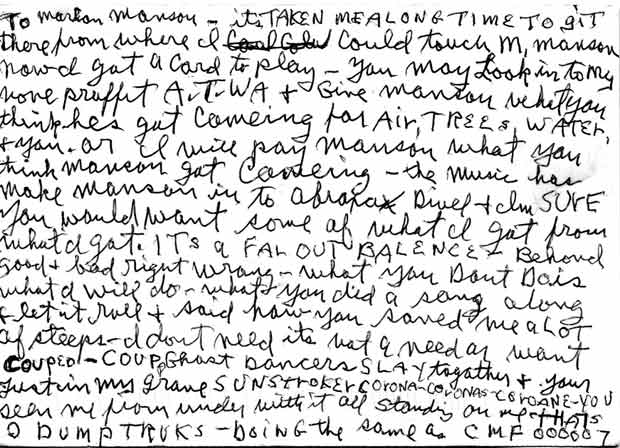 To marlon manson – its TAKEN ME ALONG TIME TO git
there from where I Could touch M, manson
now I got a Card to play – you may Look in to my
nove proffit A.T.WA + Give manson what you
think hes got Comeing for Air, TREES, WATER,
+ you. or I will pay Manson what you
think Manson got Comeing – the music has
make manson in to abraxas Divel + Im SURE
you would want some of what I got from
what I got. ITs a FAL OUT BALENCE – Behond
good + bad right wrong – what you Dont Dois
what I will do – what you did a song along
+ let it roll + said how you saved me a LOT
of steeps – I dont need its not a need or want
COUPED – COUP, Ghost Dancers SLAY together + your
just in my grave SUNSTROKER CORONA-CORONAS-COROANE-YOU
seen me from under with it all standing on me THATS
2 DUMP TRUKS – DOING THE SAME as CMF 000007